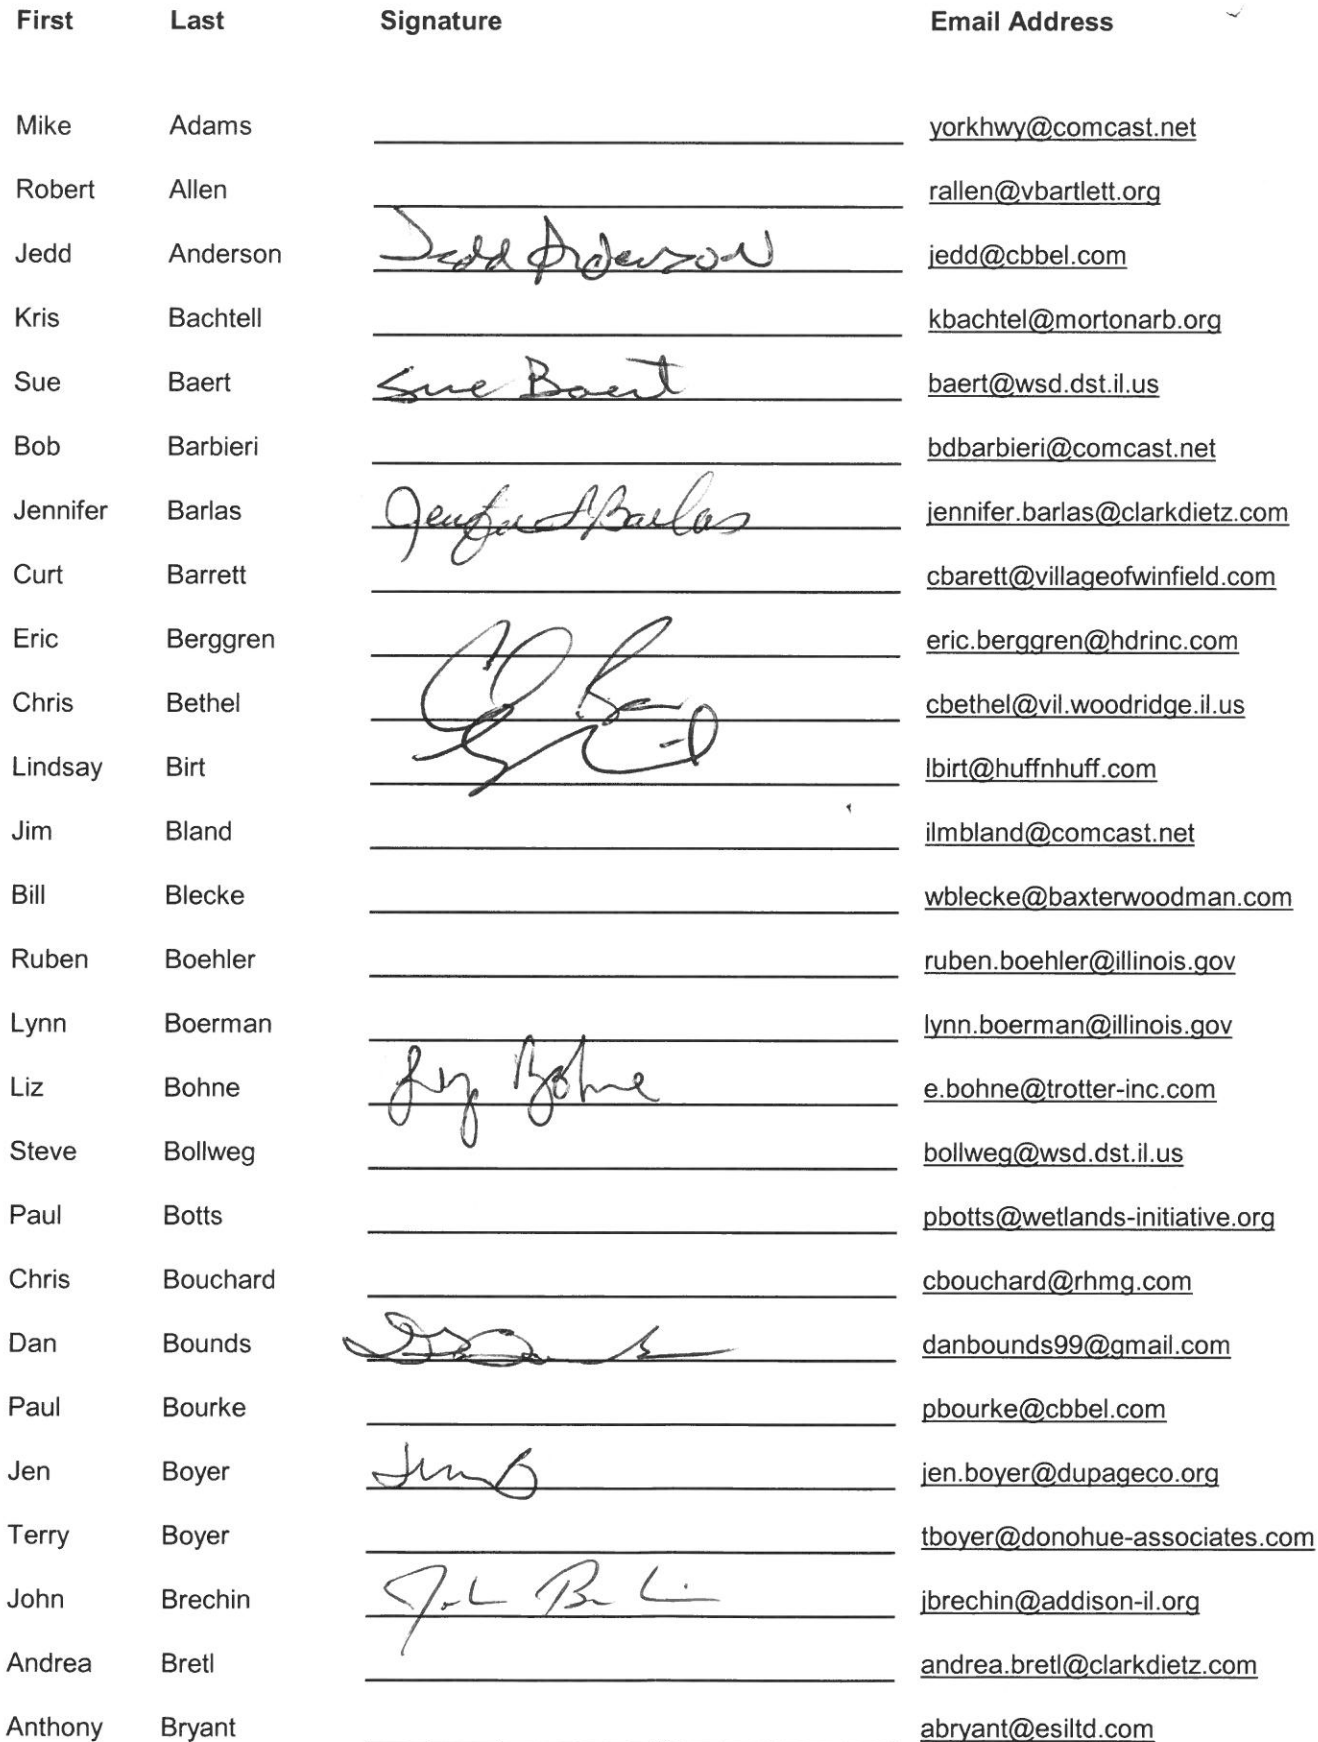 First Last Signature Email Address
Mike Adams yorkhwy@comcast.net
Robert Allen rallen@vbartlett.org
Jedd Anderson Jedd Anderson jedd@cbbel.com
Kris Bachtell kbachtel@mortonarb.org
Sue Baert Sue Baert baert@wsd.dst.il.us
Bob Barbieri bdbarbieri@comcast.net
Jennifer Barlas Jennifer Barlas jennifer.barlas@clarkdietz.com
Curt Barrett cbarett@villageofwinfield.com
Eric Berggren eric.berggren@hdrinc.com
Chris Bethel cbethel@vil.woodridge.il.us
Lindsay Birt lbirt@huffnhuff.com
Jim Bland ilmbland@comcast.net
Bill Blecke wblecke@baxterwoodman.com
Ruben Boehler ruben.boehler@illinois.gov
Lynn Boerman lynn.boerman@illinois.gov
Liz Bohne Liz Bohne e.bohne@trotter-inc.com
Steve Bollweg bollweg@wsd.dst.il.us
Paul Botts pbotts@wetlands-initiative.org
Chris Bouchard cbouchard@rhmg.com
Dan Bounds danbounds99@gmail.com
Paul Bourke pbourke@cbbel.com
Jen Boyer Jen B jen.boyer@dupageco.org
Terry Boyer tboyer@donohue-associates.com
John Brechin jbrechin@addison-il.org
Andrea Bretl andrea.bretl@clarkdietz.com
Anthony Bryant abryant@esiltd.com